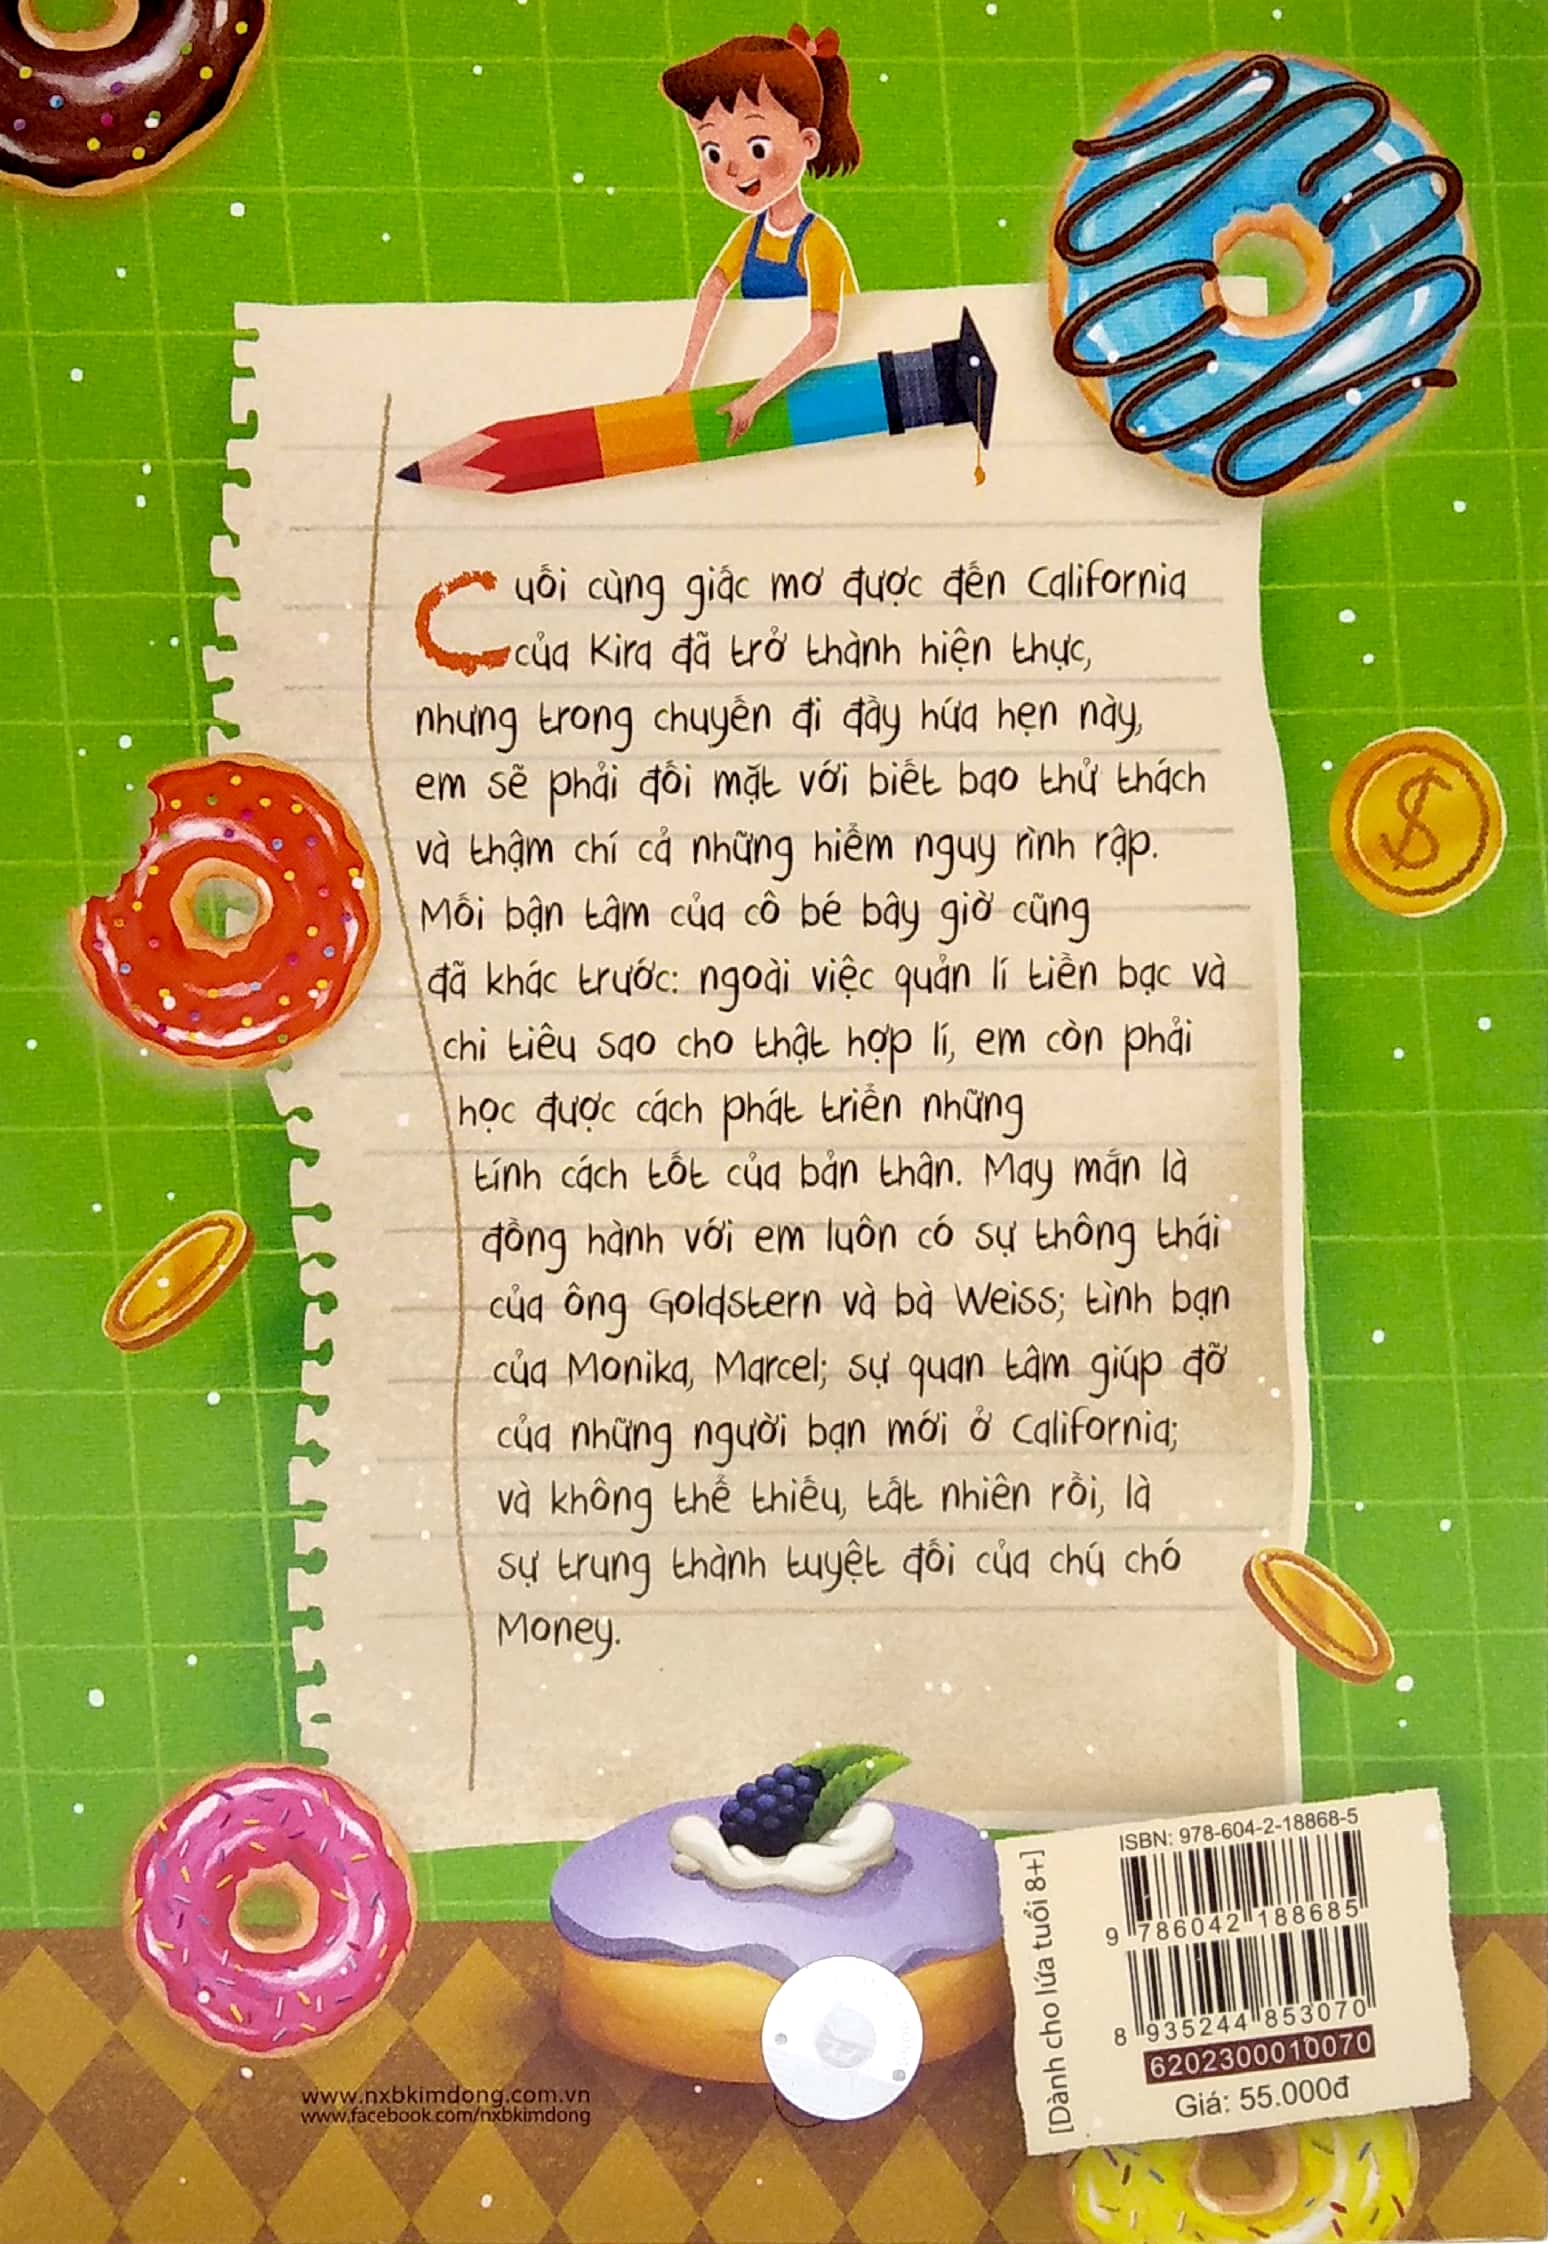 Cuối cùng giấc mơ được đến California
của Kira đã trở thành hiện thực,
nhưng trong chuyến đi đầy hứa hẹn này,
em sẽ phải đối mặt với biết bao thử thách
và thậm chí cả những hiểm nguy rình rập.
Mối bận tâm của cô bé bây giờ cũng
đã khác trước: ngoài việc quản lí tiền bạc và
chi tiêu sao cho thật hợp lí, em còn phải
học được cách phát triển những
tính cách tốt của bản thân. May mắn là
đồng hành với em luôn có sự thông thái
của ông Goldstern và bà Weiss; tình bạn
của Monika, Marcel; sự quan tâm giúp đỡ
của những người bạn mới ở California;
và không thể thiếu, tất nhiên rồi, là
sự trung thành tuyệt đối của chú chó
Money.
[Dành cho lứa tuổi 8+]
ISBN: 978-604-2-18868-5
9 786042 188685
8 935244 853070
6202300010070
Giá: 55.000đ
www.nxbkimdong.com.vn
www.facebook.com/nxbkimdong